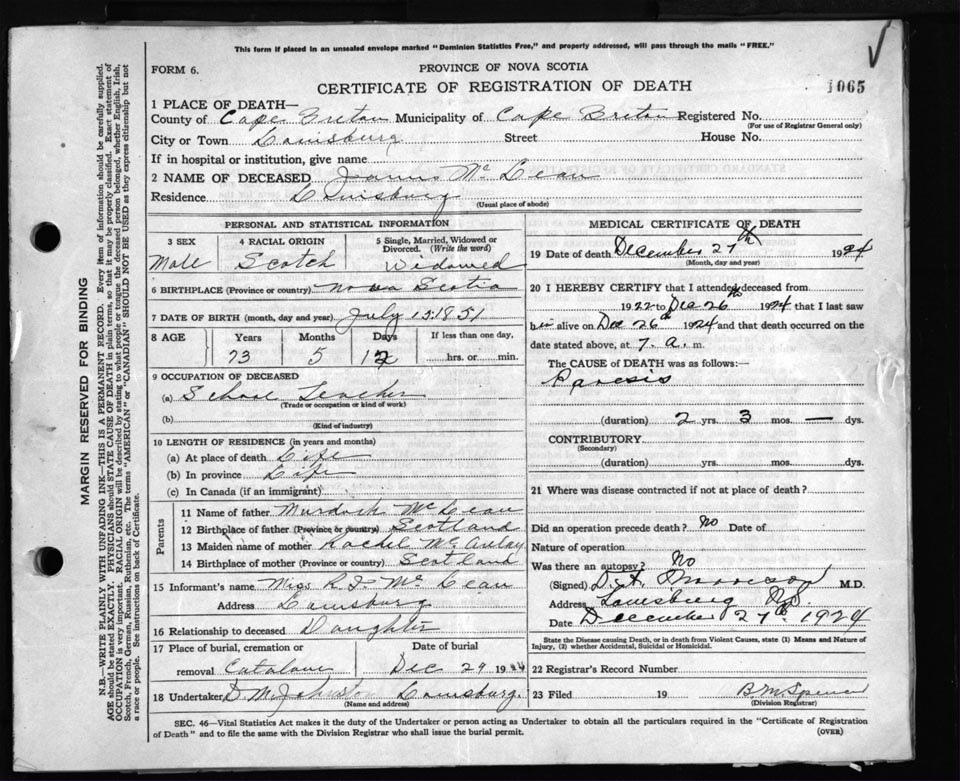 This form if placed in an unsealed envelope marked "Dominion Statistics Free," and properly addressed, will pass through the mails "FREE."
FORM 6.
PROVINCE OF NOVA SCOTIA
CERTIFICATE OF REGISTRATION OF DEATH
1065
1 PLACE OF DEATH—
County of Cape Breton Municipality of Cape Breton Registered No.
(For use of Registrar General only)
City or Town Louisburg Street House No.
If in hospital or institution, give name
2 NAME OF DECEASED James McLean
Residence Louisburg
(Usual place of abode)
PERSONAL AND STATISTICAL INFORMATION
3 SEX
Male
4 RACIAL ORIGIN
Scotch
5 Single, Married, Widowed or Divorced. (Write the word)
Widowed
6 BIRTHPLACE (Province or country) Nova Scotia
7 DATE OF BIRTH (month, day and year) July 15 1851
8 AGE
Years Months Days If less than one day,
73 5 12 hrs. or min.
9 OCCUPATION OF DECEASED
(a) School Teacher
(Trade or occupation or kind of work)
(b)
(Kind of industry)
10 LENGTH OF RESIDENCE (in years and months)
(a) At place of death Life
(b) In province Life
(c) In Canada (if an immigrant)
Parents
11 Name of father Murdock McLean
12 Birthplace of father (Province or country) Scotland
13 Maiden name of mother Rachel McAulay
14 Birthplace of mother (Province or country) Scotland
15 Informant's name Miss R J McLean
Address Louisburg
16 Relationship to deceased Daughter
17 Place of burial, cremation or Date of burial
removal Catalone Dec 29 1924
18 Undertaker D. M. Johnston Louisburg.
(Name and address)
MEDICAL CERTIFICATE OF DEATH
19 Date of death December 27th 1924
(Month, day and year)
20 I HEREBY CERTIFY that I attended deceased from
1922 to Dec 26th 1924 that I last saw
him alive on Dec 26th 1924 and that death occurred on
date stated above, at 7. a. m.
The CAUSE OF DEATH was as follows:—
Paresis
(duration) 2 yrs. 3 mos. — dys.
CONTRIBUTORY
(Secondary)
(duration) yrs. mos. dys.
21 Where was disease contracted if not at place of death?
Did an operation precede death? No Date of
Nature of operation
Was there an autopsy? No
(Signed) Morrison M.D.
Address Louisburg NS
Date December 27th 1924
State the Disease causing Death, or in death from Violent Causes, state (1) Means and Nature of
Injury, (2) whether Accidental, Suicidal or Homicidal.
22 Registrar's Record Number
23 Filed 19 B M Spencer
(Division Registrar)
SEC. 46—Vital Statistics Act makes it the duty of the Undertaker or person acting as Undertaker to obtain all the particulars required in the "Certificate of Registration
of Death" and to file the same with the Division Registrar who shall issue the burial permit. (OVER)
MARGIN RESERVED FOR BINDING
N.B.—WRITE PLAINLY WITH UNFADING INK—THIS IS A PERMANENT RECORD. Every item of information should be carefully supplied.
AGE should be stated EXACTLY. PHYSICIANS should STATE CAUSE OF DEATH in plain terms, so that it may be properly classified. Exact statement of
OCCUPATION is very important. RACIAL ORIGIN will be described by stating to what people or tongue the deceased person belonged, whether English, Irish,
Scotch, French, German, Russian, Ruthenian, etc. The terms "AMERICAN" or "CANADIAN" SHOULD NOT BE USED as they express citizenship but not
a race or people. See instructions on back of Certificate.